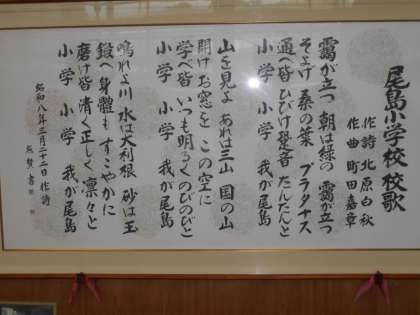 尾島小学校 校歌
作詩 北原白秋
作曲 町田嘉章
靄が立つ 朝は緑の 靄が立つ
そよげ 桑の葉 プラタナス
通へ皆 ひびけ跫音 たんたんと
小学 小学 我が尾島
山を見よ あれは三山 国の山
開けお窓を この空に
学べ皆 いつも明るく のびのびと
小学 小学 我が尾島
鳴れよ川 水は大利根 砂は玉
鍛へ身體も すこやかに
磨け皆 清く正しく 凛々と
小学 小学 我が尾島
昭和八年三月二十二日 作詩